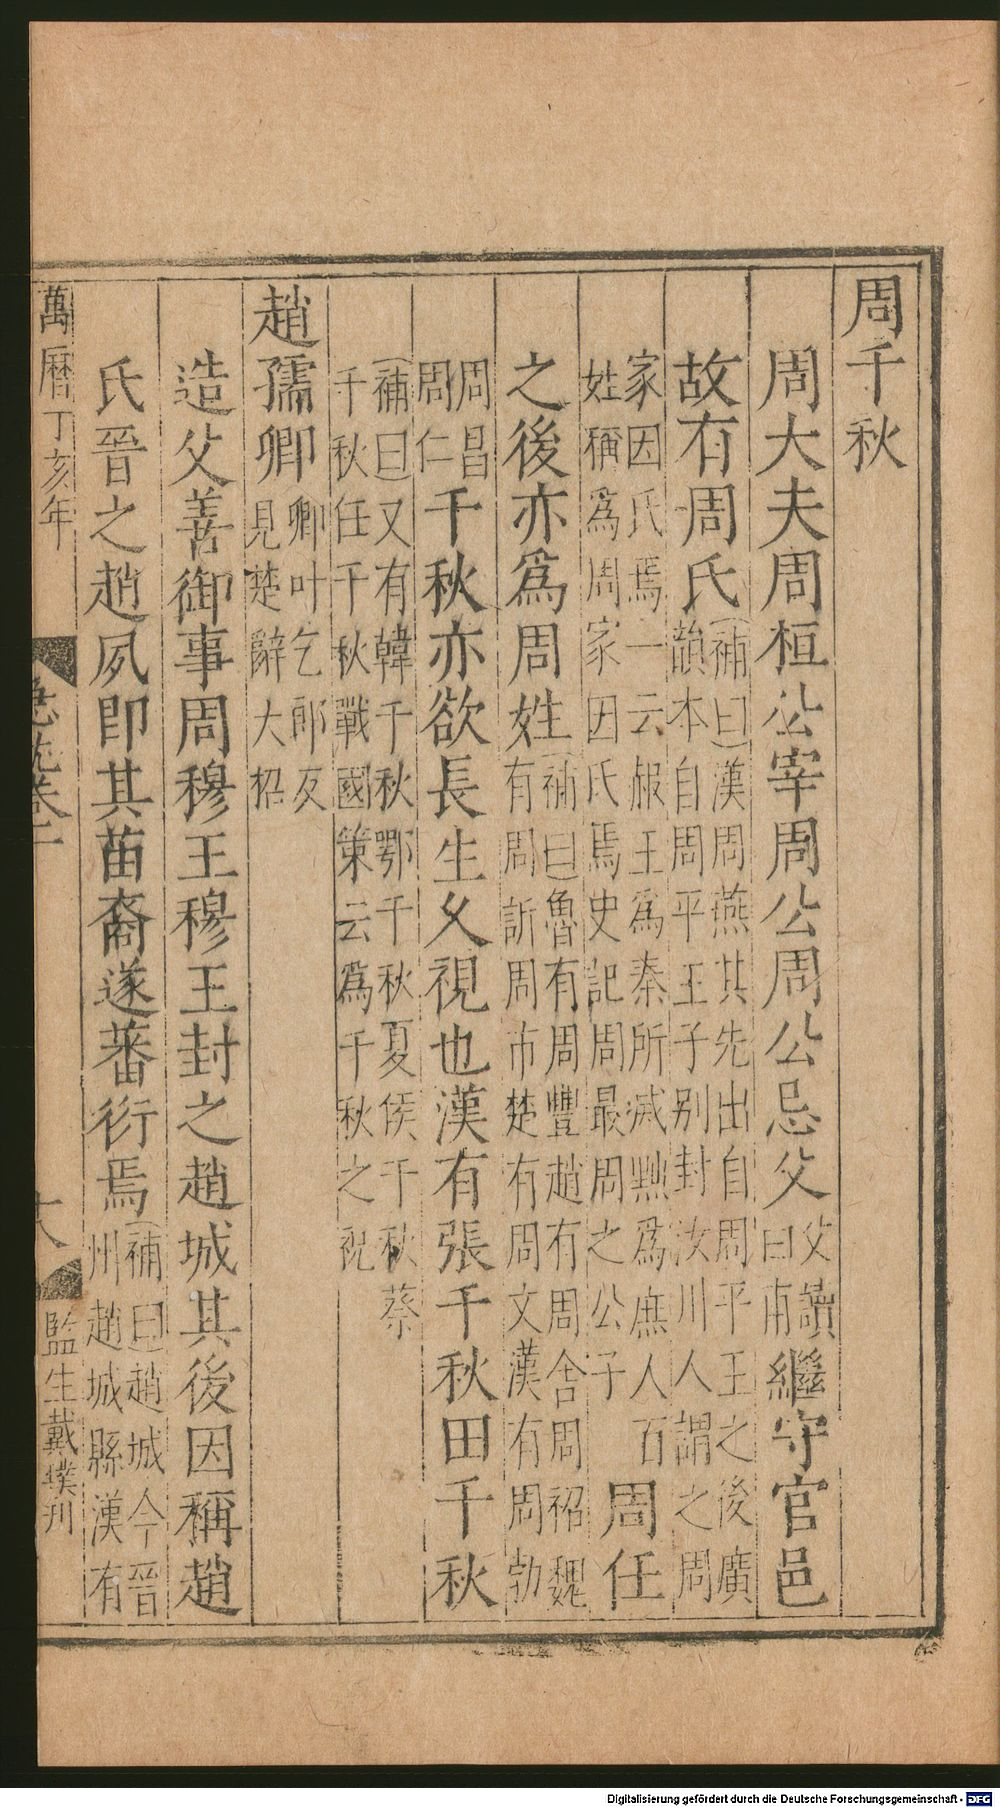 周千秋
周大夫周桓公宰周公周公忌父父讀曰甫繼守官邑
故有周氏(補曰)漢周燕其先出自周平王之後廣韻本自周平王子別封汝川人謂之周
家因氏焉一云赧王爲秦所滅黜爲庶人百姓稱爲周家因氏焉史記周最周之公子周任
之後亦爲周姓(補曰)魯有周豐趙有周舍周祒魏有周訢周市楚有周文漢有周勃
周昌周仁千秋亦欲長生久視也漢有張千秋田千秋
(補曰)又有韓千秋鄂千秋夏侯千秋蔡千秋任千秋戰國策云爲千秋之祝
趙孺卿卿叶乞郎反見楚辭大招
造父善御事周穆王穆王封之趙城其後因稱趙
氏晉之趙夙即其苗裔遂蕃衍焉(補曰)趙城今晉州趙城縣漢有
萬曆丁亥年 急就卷一 十八 監生戴墣刊
Digitalisierung gefördert durch die Deutsche Forschungsgemeinschaft - DFG